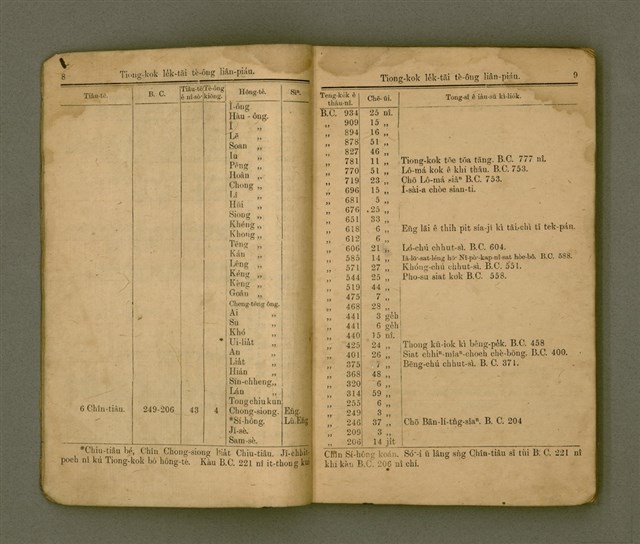 8
Tiong-kok le̍k-tāi tè-ông liân-piáu.
Tiâu-tē. B. C. Tiâu-tē ê nî-sò͘ Tè-ông kióng. Hông-tè. Sìⁿ.
I-ông
Hàu - ông.
I „
Lē „
Soan „
Iu „
Pêng „
Hoân „
Chong „
Li „
Hūi „
Siong „
Khéng „
Khong „
Tēng „
Kán „
Lêng „
Kéng „
Kèng „
Goân „
Cheng-tēng ông.
Ai „
Su „
Khó „
Ui-lia̍t „
An „
Lia̍t „
Hián „
Sīn-chheng „
Lán „
Tong chiu kun
6 Chîn-tiâu. 249-206 43 4 Chong-siong. Eng
*Sí-hông. Lū.Eng
Jī-sè.
Sam-sè.
*Chiu-tiâu bé, Chîn Chong-siong bia̍t Chiu-tiâu. Jī-chha̍p
poeh nî kú Tiong-kok bô hông-tè. Kàu B.C. 221 nî it-thong
Tiong-kok le̍k-tāi tè-ông liân-piáu.
9
Teng-ke̍k ê thâu-nî. Chē-ūi. Tong-sî ê iàu-sū kì-lio̍k.
B.C. 934 25 nî.
„ 909 15 „
„ 894 16 „
„ 878 51 „
„ 827 46 „
„ 781 11 „ Tiong-kok tōe tōa tāng. B.C. 777 nî.
„ 770 51 „ Lô-má kok ê khí thâu. B.C. 753.
„ 719 23 „ Chō Lô-má siâⁿ B.C. 753.
„ 696 15 „ Í-sài-a chòe sian-ti.
„ 681 5 „
„ 676 25 „
„ 651 33 „
„ 618 6 „ Eng lâi ê thih pit siá-jī kì tāi-chì tī tek-pán.
„ 612 6 „
„ 606 21 „ Ló-chú chhut-sì. B.C. 604.
„ 585 14 „ Iâ-lō͘-sat-léng hō͘ Nî-pò͘-kap-nî-sat hòe-bû. B.C. 588.
„ 571 27 „ Khóng-chú chhut-sì. B.C. 551.
„ 544 25 „ Pho-su siat kok B.C. 558.
„ 519 44 „
„ 475 7 „
„ 468 28 „
„ 441 3 ge̍h
„ 441 6 ge̍h
„ 440 15 nî.
„ 425 24 „ Thong kū-iok kì bêng-pe̍k. B.C. 458
„ 401 26 „ Siat chhiⁿ-mîⁿ-choeh chè-bōng. B.C. 400.
„ 375 7 „ Bēng-chú chhut-sì. B.C. 371.
„ 368 48 „
„ 320 6 „
„ 314 59 „
„ 255 6 „
„ 249 3 „
„ 246 37 „ Chō Bān-lí-tn̂g-siâⁿ. B.C. 204
„ 209 3 „
„ 206 14 ji̍t
Chîn Sí-hông koán. Só͘-í ū lâng sǹg Chîn-tiâu sī tùi B. C. 221 nî
khí kàu B.C. 206 nî chí.